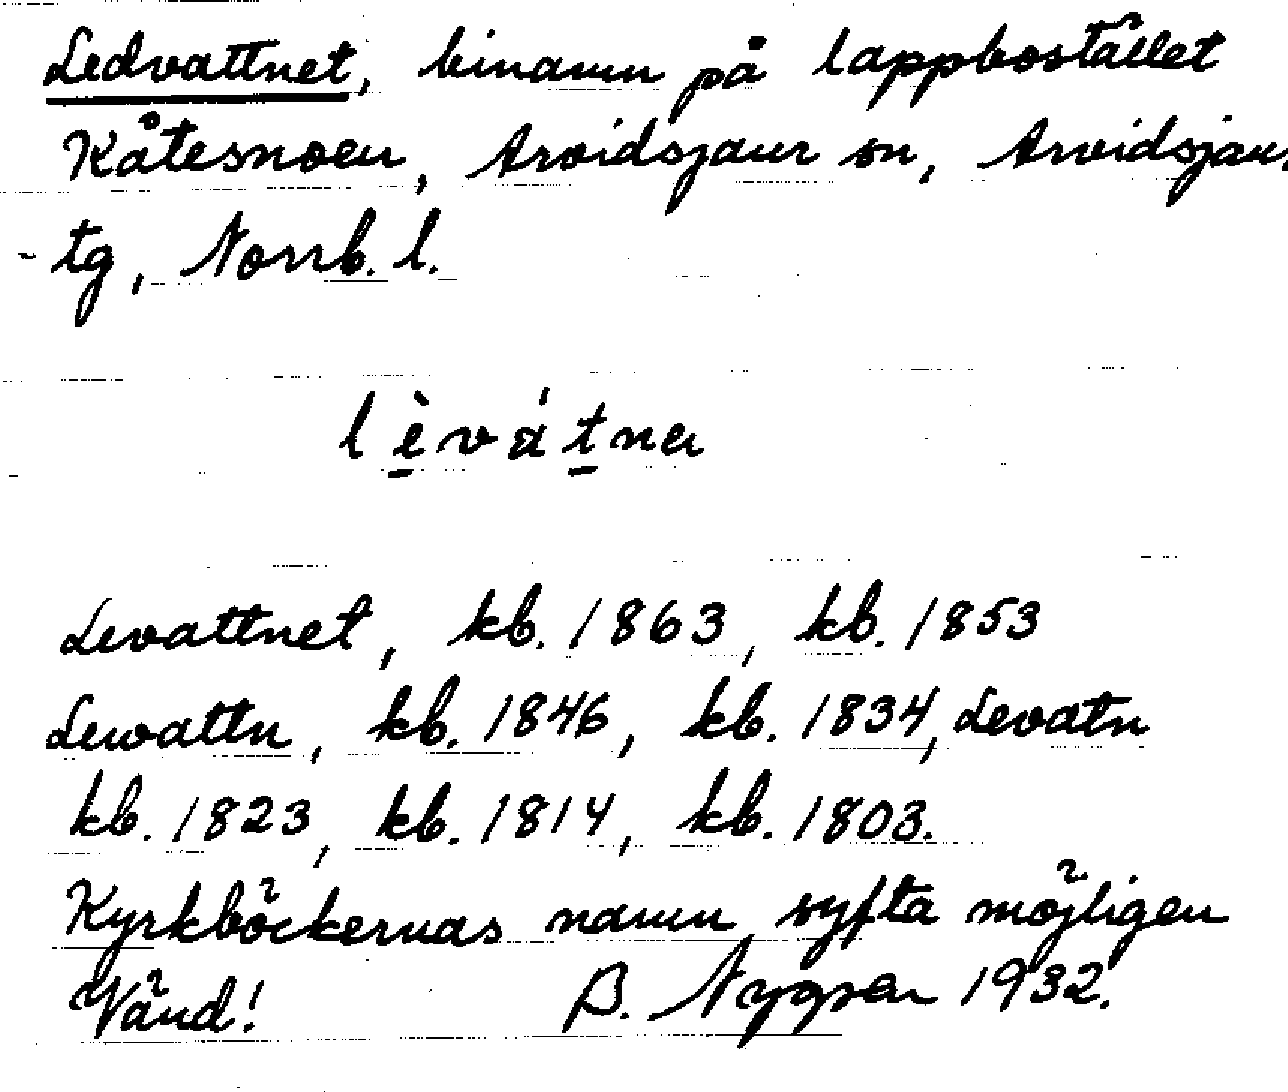 Ledvattnet, binamn på lappbostället
Kåtesnoen, Arvidsjaur sn, Arvidsjaur
- tg, Norrb. l.
lèvátnə
Levattnet, kb. 1863, kb. 1853
Lewattn, kb. 1846, kb. 1834, Levatn
kb. 1823, kb. 1814, kb. 1803.
Kyrkböckernas namn syfta möjligen
Vänd! B. Nygren 1932.